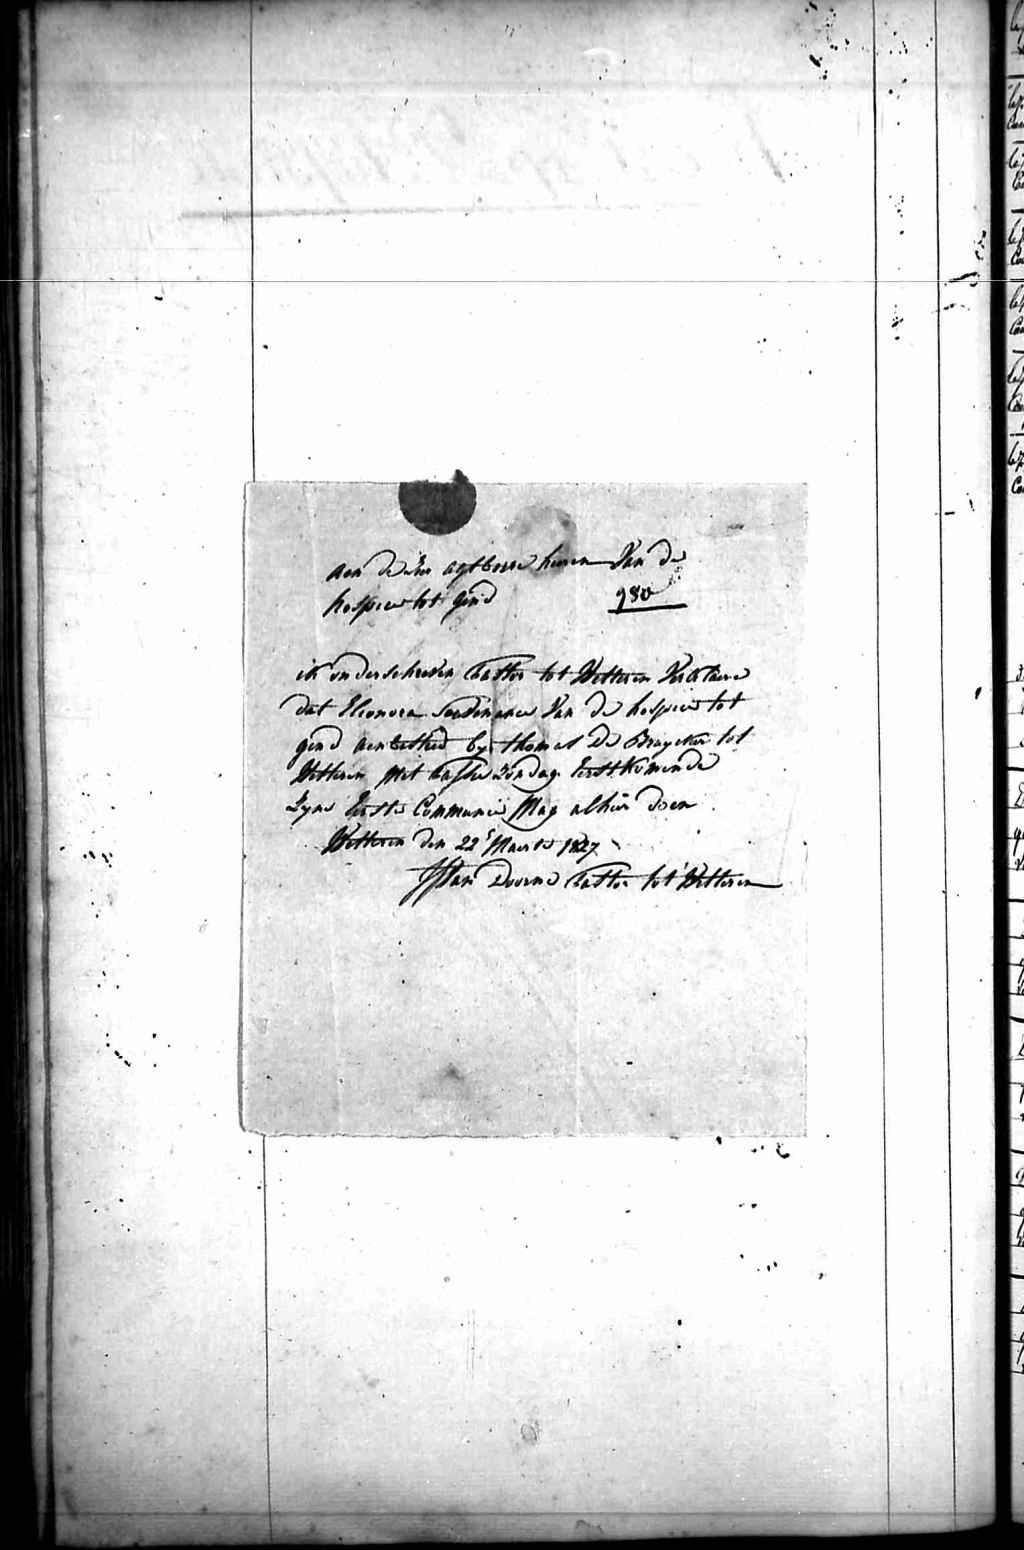 aen de seer agtbaere heeren Van de
hospice tot gend 980
ik onderschreven Pastor tot Wetteren Verklaere
dat Eleonora Van de hospice tot
gend aenbesteed by thomas De Bruycker tot
Wetteren Met Passche Zondag Eerst Komende
Zyne Eerste Communie Mag alhier doen
Wetteren den 22 Maerte 1827
Van Doorne Pastor tot Wetteren